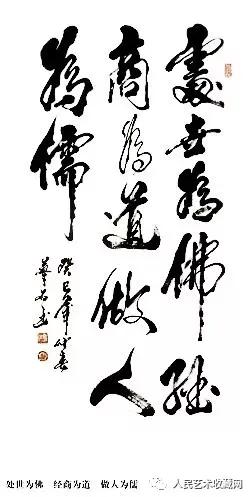 處世為佛經
商為道做人
為儒
癸巳年仲春
处世为佛 经商为道 做人为儒
人民艺术收藏网